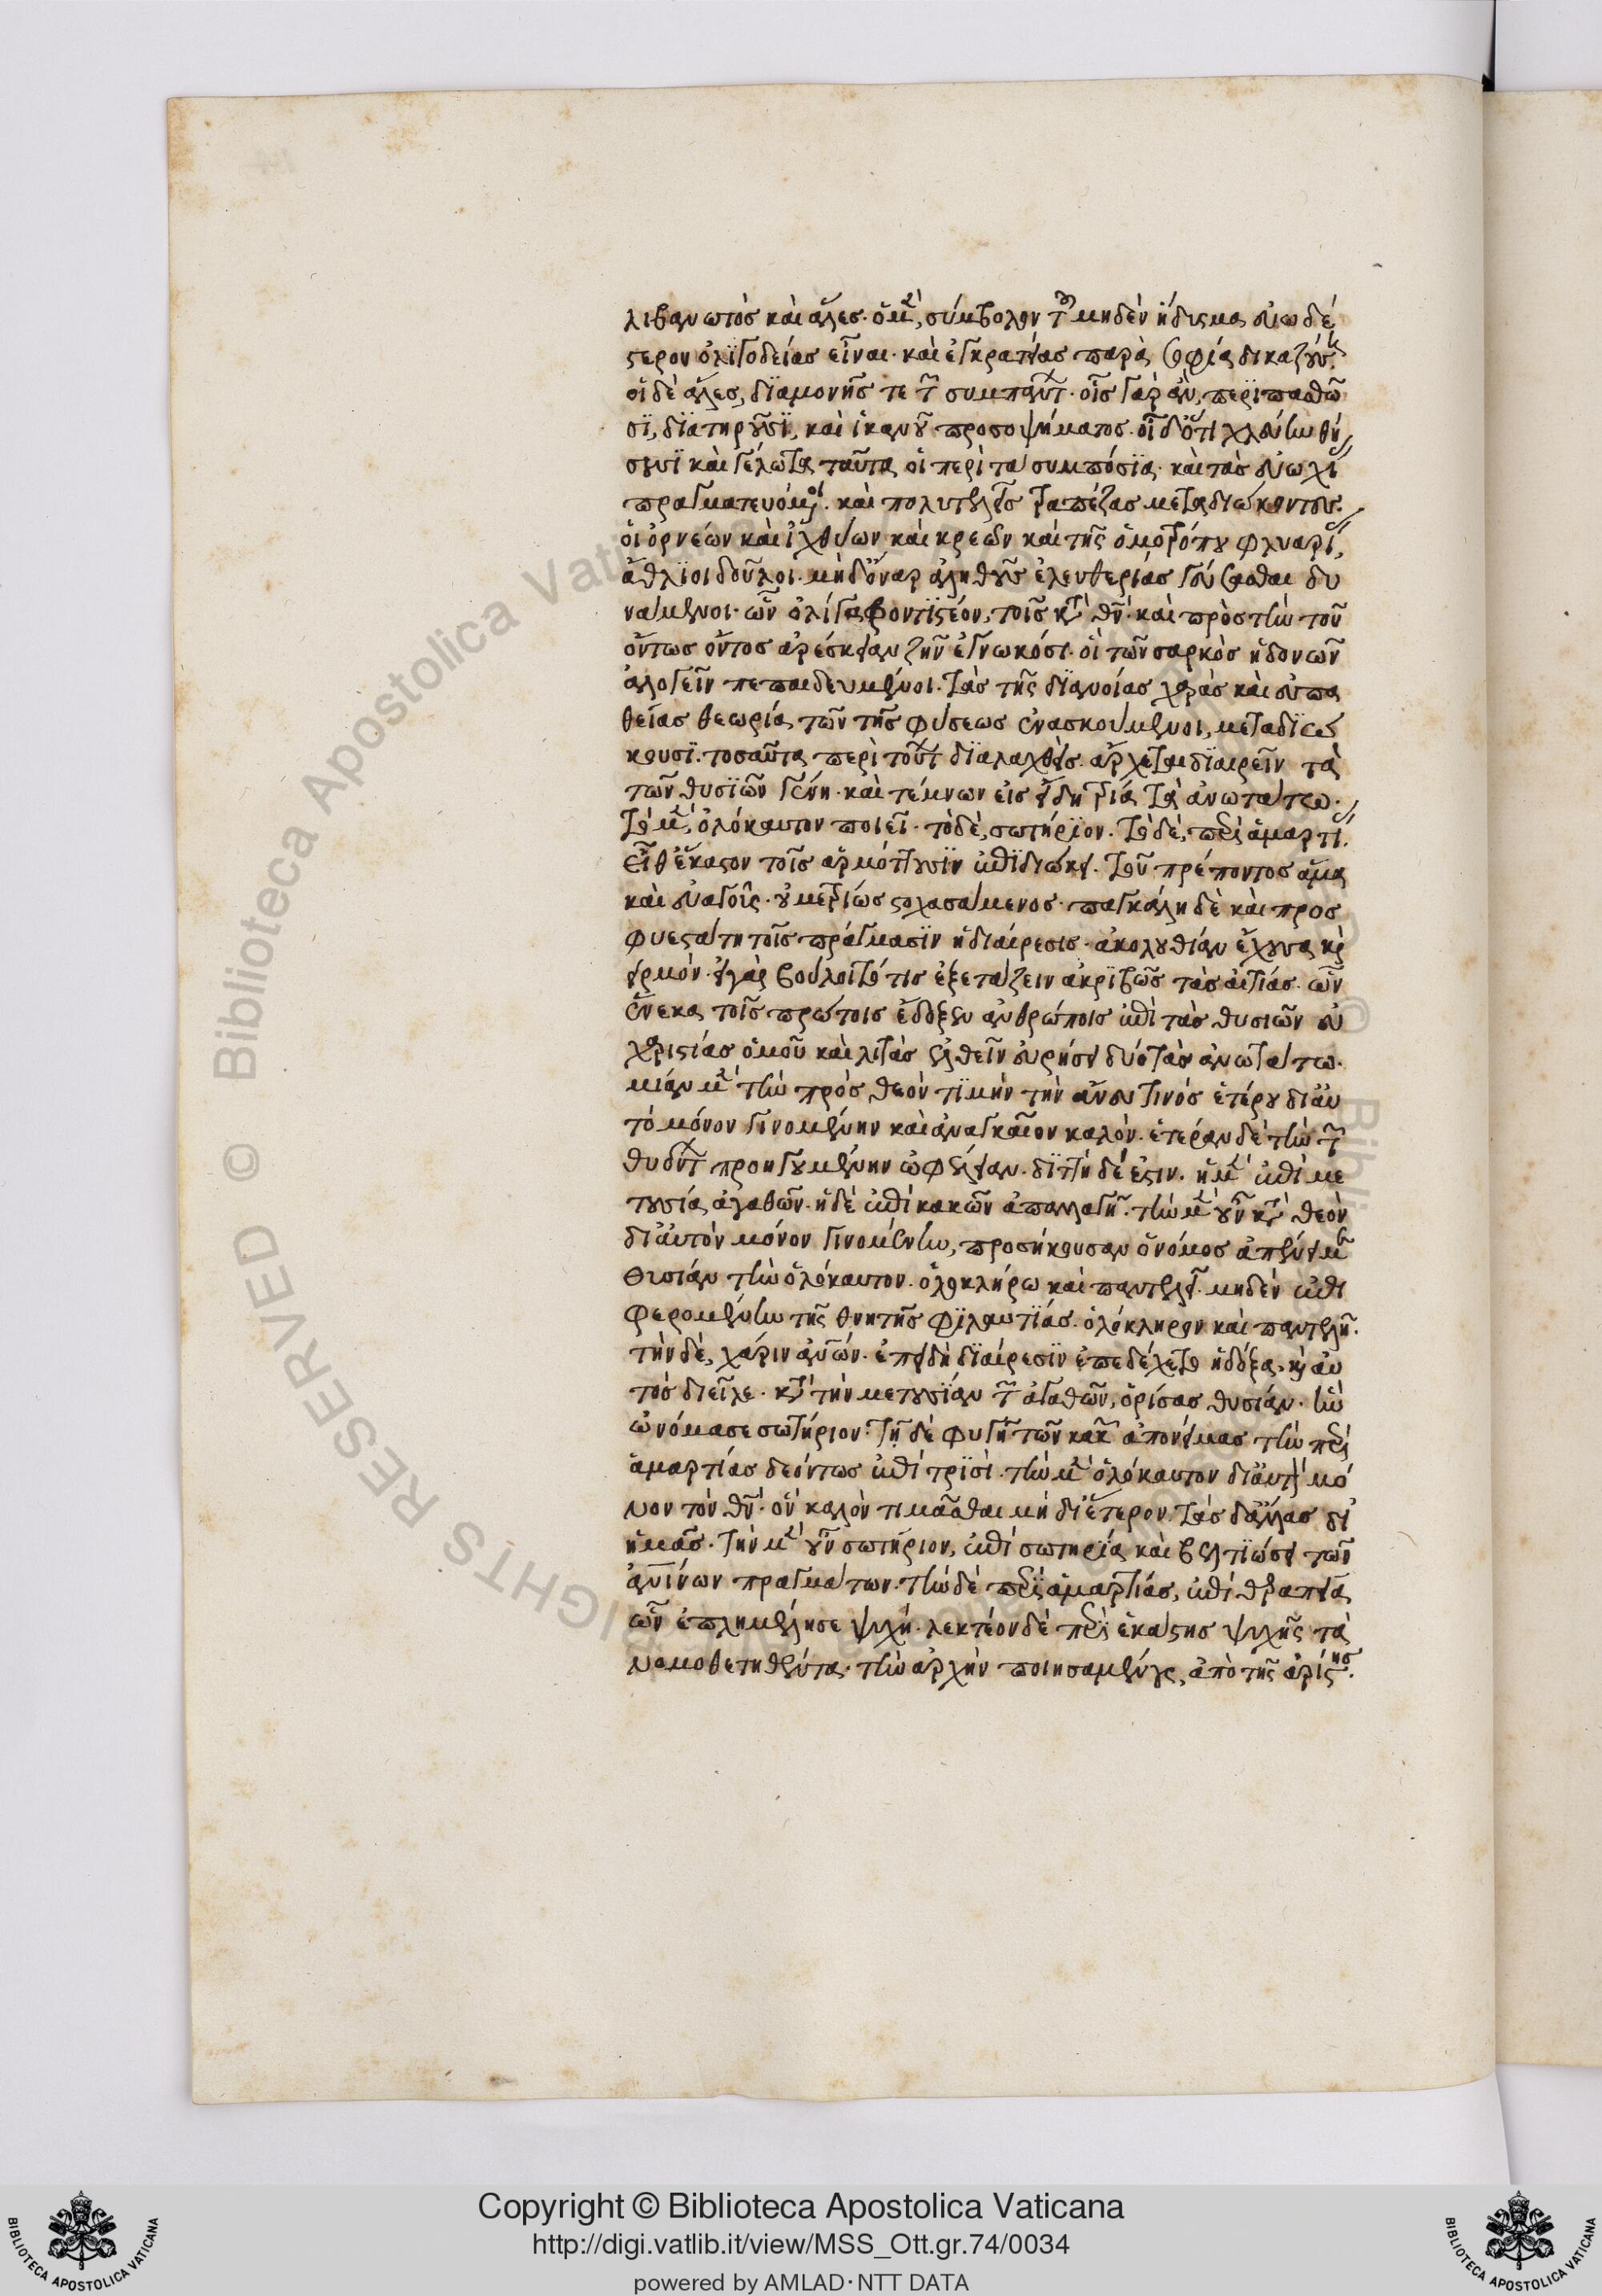 λιβανωτὸς καὶ ἅλες· ὁ μὲν, σύμβολον τοῦ μηδὲν ἥδυσμα εὐωδέ
στερον ὀλιγοδείας εἶναι· καὶ ἐγκρατείας παρὰ σοφία δικαζούσῃ
οἱ δὲ ἅλες, διαμονῆς τε τῶν συμπάντων· οἷς γὰρ ἂν, περιπασθῶ
σι, διατηροῦσι, καὶ ἱκανοῦ προσοψήματος· οἶδ' ὅτι χλεύην θή
σουσι καὶ γέλωτα ταῦτα οἱ περὶ τὰ συμπόσια· καὶ τὰς εὐωχίας
πραγματευόμενοι· καὶ πολυτελεῖς τραπέζας μεταδιώκοντες·
οἱ ὀρνέων καὶ ἰχθύων καὶ κρεῶν καὶ τῆς ὁμοτρόπου φλυαρίας,
ἄθλιοι δοῦλοι· μηδ' ὄναρ ἀληθοῦς ἐλευθερίας γεύσασθαι δυ
νάμενοι· ὧν ὀλίγα φροντιστέον, τοῖς κατὰ θεὸν· καὶ πρὸς τὴν τοῦ
ὄντως ὄντος ἀρέσκειαν ζῆν ἐγνωκόσι· οἳ τῶν σαρκὸς ἡδονῶν
ἀλογεῖν πεπαιδευμένοι· τὰς τῆς διανοίας χαρὰς καὶ εὐπα
θείας θεωρία τῶν τῆς φύσεως ἐνασκούμενοι, μεταδιώ
κουσι· τοσαῦτα περὶ τούτων διαλεχθεὶς· ἄρχεται διαιρεῖν τὰ
τῶν θυσιῶν γένη· καὶ τέμνων εἰς εἴδη τρία τὰ ἀνωτάτω·
τὸ μὲν, ὁλόκαυτον ποιεῖ· τὸ δὲ, σωτήριον· τὸ δὲ, περὶ ἁμαρτίας·
εἶθ' ἕκαστον τοῖς ἁρμόττουσιν ἐπιδιώκει· τοῦ πρέποντος ἅμα
καὶ εὐαγοῦς· οὐ μετρίως στοχασάμενος· παγκάλη δὲ καὶ προσ
φυεστάτη τοῖς πράγμασιν ἡ διαίρεσις· ἀκολουθίαν ἔχουσα καὶ
εἱρμόν· εἰ γὰρ βούλοιτό τις ἐξετάζειν ἀκριβῶς τὰς αἰτίας· ὧν
ἕνεκα τοῖς πρώτοις ἔδοξεν ἀνθρώποις ἐπὶ τὰς θυσιῶν εὐ
χαριστίας ὁμοῦ καὶ λιτὰς ἐλθεῖν εὑρήσει δύο τὰς ἀνωτάτω·
μίαν μὲν τὴν πρὸς θεὸν τιμὴν τὴν ἄνευ τινὸς ἑτέρου δι' αὐ
τὸ μόνον γινομένην καὶ ἀναγκαῖον καλὸν· ἑτέραν δὲ τὴν τῶν
θυόντων προηγουμένην ὠφέλειαν· διττὴ δέ ἐστιν· ἡ μὲν ἐπὶ με
τουσία ἀγαθῶν· ἡ δὲ ἐπὶ κακῶν ἀπαλλαγῇ· τῇ μὲν οὖν κατὰ θεὸν
δι' αὐτὸν μόνον γινομένην, προσήκουσαν ὁ νόμος ἀπένειμε
θυσίαν τὴν ὁλόκαυτον· ὁλοκλήρω καὶ παντελεῖ· μηδὲν ἐπι
φερομένην τῆς θνητῆς φιλαυτίας· ὁλόκληρον καὶ παντελῆ·
τὴν δὲ, χάριν ἀνθρώπων· ἐπειδὴ διαίρεσιν ἐπεδέχετο ἡ δόξα· καὶ αὐ
τὸς διεῖλε· κατὰ τὴν μετουσίαν τῶν ἀγαθῶν, ὁρίσας θυσίαν· ἣν
ὠνόμασε σωτήριον· τῇ δὲ φυγῇ τῶν κακῶν ἀπονείμας τὴν περὶ
ἁμαρτίας δεόντως ἐπὶ τρισὶ· τὴν μὲν ὁλόκαυτον δι' αὐτὸν μό
νον τὸν θεὸν· ὃν καλὸν τιμᾶσθαι μὴ δι' ἕτερον· τὰς δ' ἄλλας δι'
ἡμᾶς· τὴν μὲν οὖν σωτήριον, ἐπὶ σωτηρία καὶ βελτιώσει τῶν
ἀνθρωπίνων πραγμάτων· τὴν δὲ περὶ ἁμαρτίας, ἐπὶ θεραπεία
ὧν ἐπλημμέλησε ψυχή· λεκτέον δὲ περὶ ἑκάστης ψυχῆς τὰ
νομοθετηθέντα· τὴν ἀρχὴν ποιησαμένους, ἀπὸ τῆς ἀρίστης·
Copyright © Biblioteca Apostolica Vaticana
http://digi.vatlib.it/view/MSS_Ott.gr.74/0034
powered by AMLAD·NTT DATA